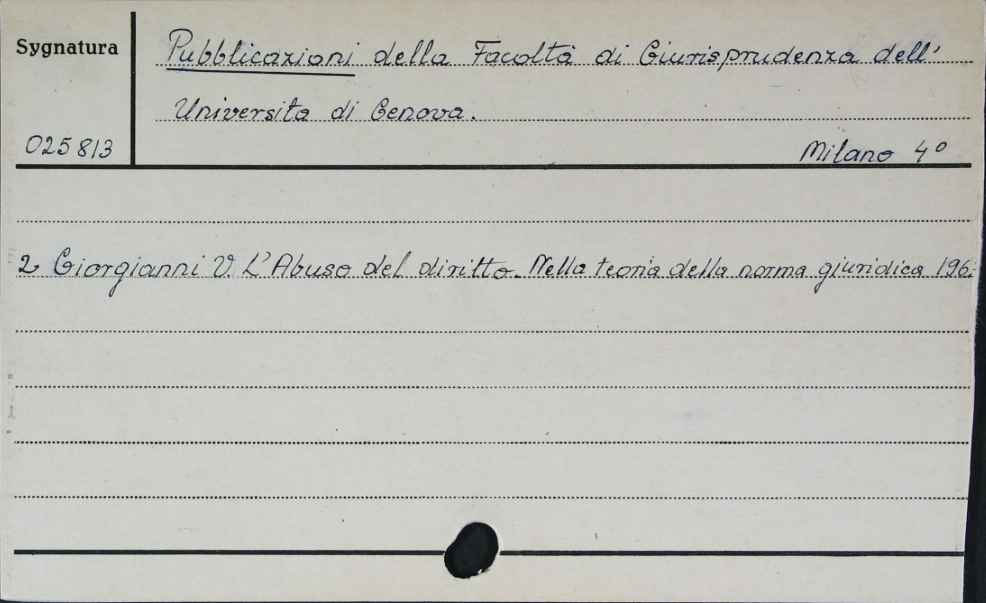 Sygnatura
Pubblicazioni della Facoltà di Giurisprudenza dell'
Universita di Genova.
025813
Milano 4°
2 Giorgianni V. L'Abuso del diritto. Nella teoria della norma giuridica 196